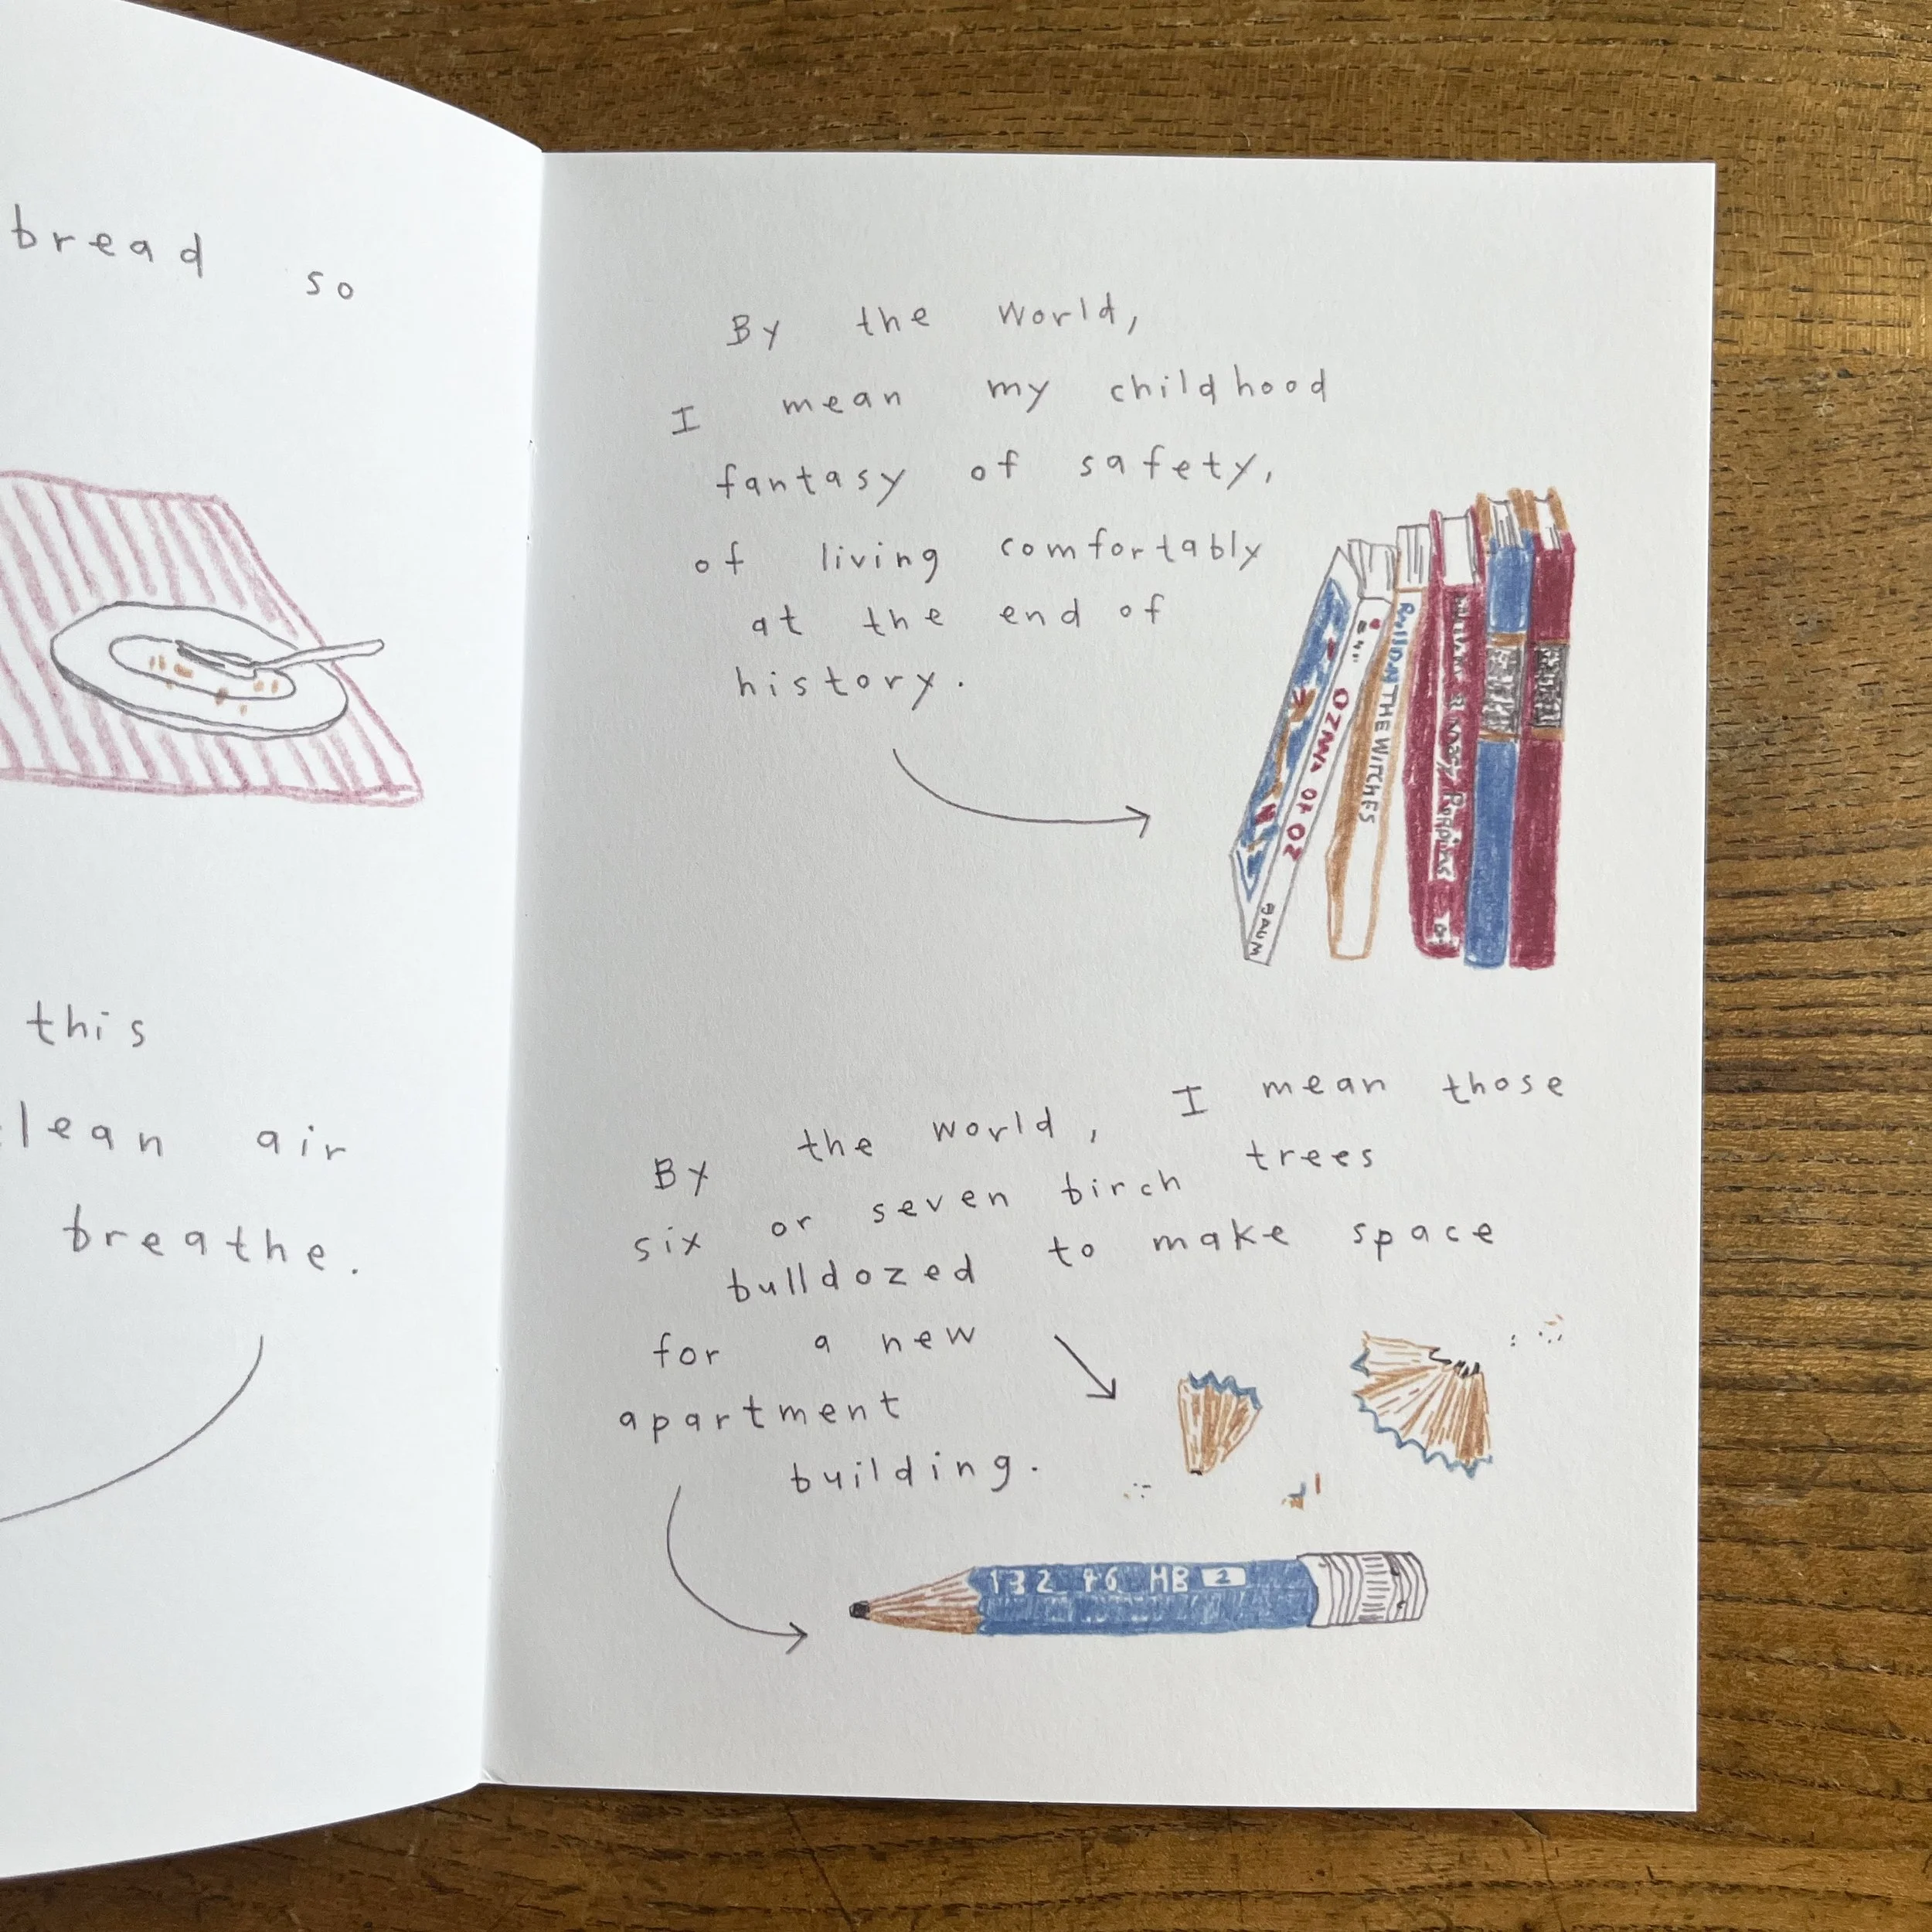 bread so
this
lean air
breathe.
By the world,
I mean my childhood
fantasy of safety,
of living comfortably
at the end of
history.
OZMA OF OZ
BAUM
THE WITCHES
Poppins
By the world, I mean those
six or seven birch trees
bulldozed to make space
for a new
apartment
building.
132 46 HB 2